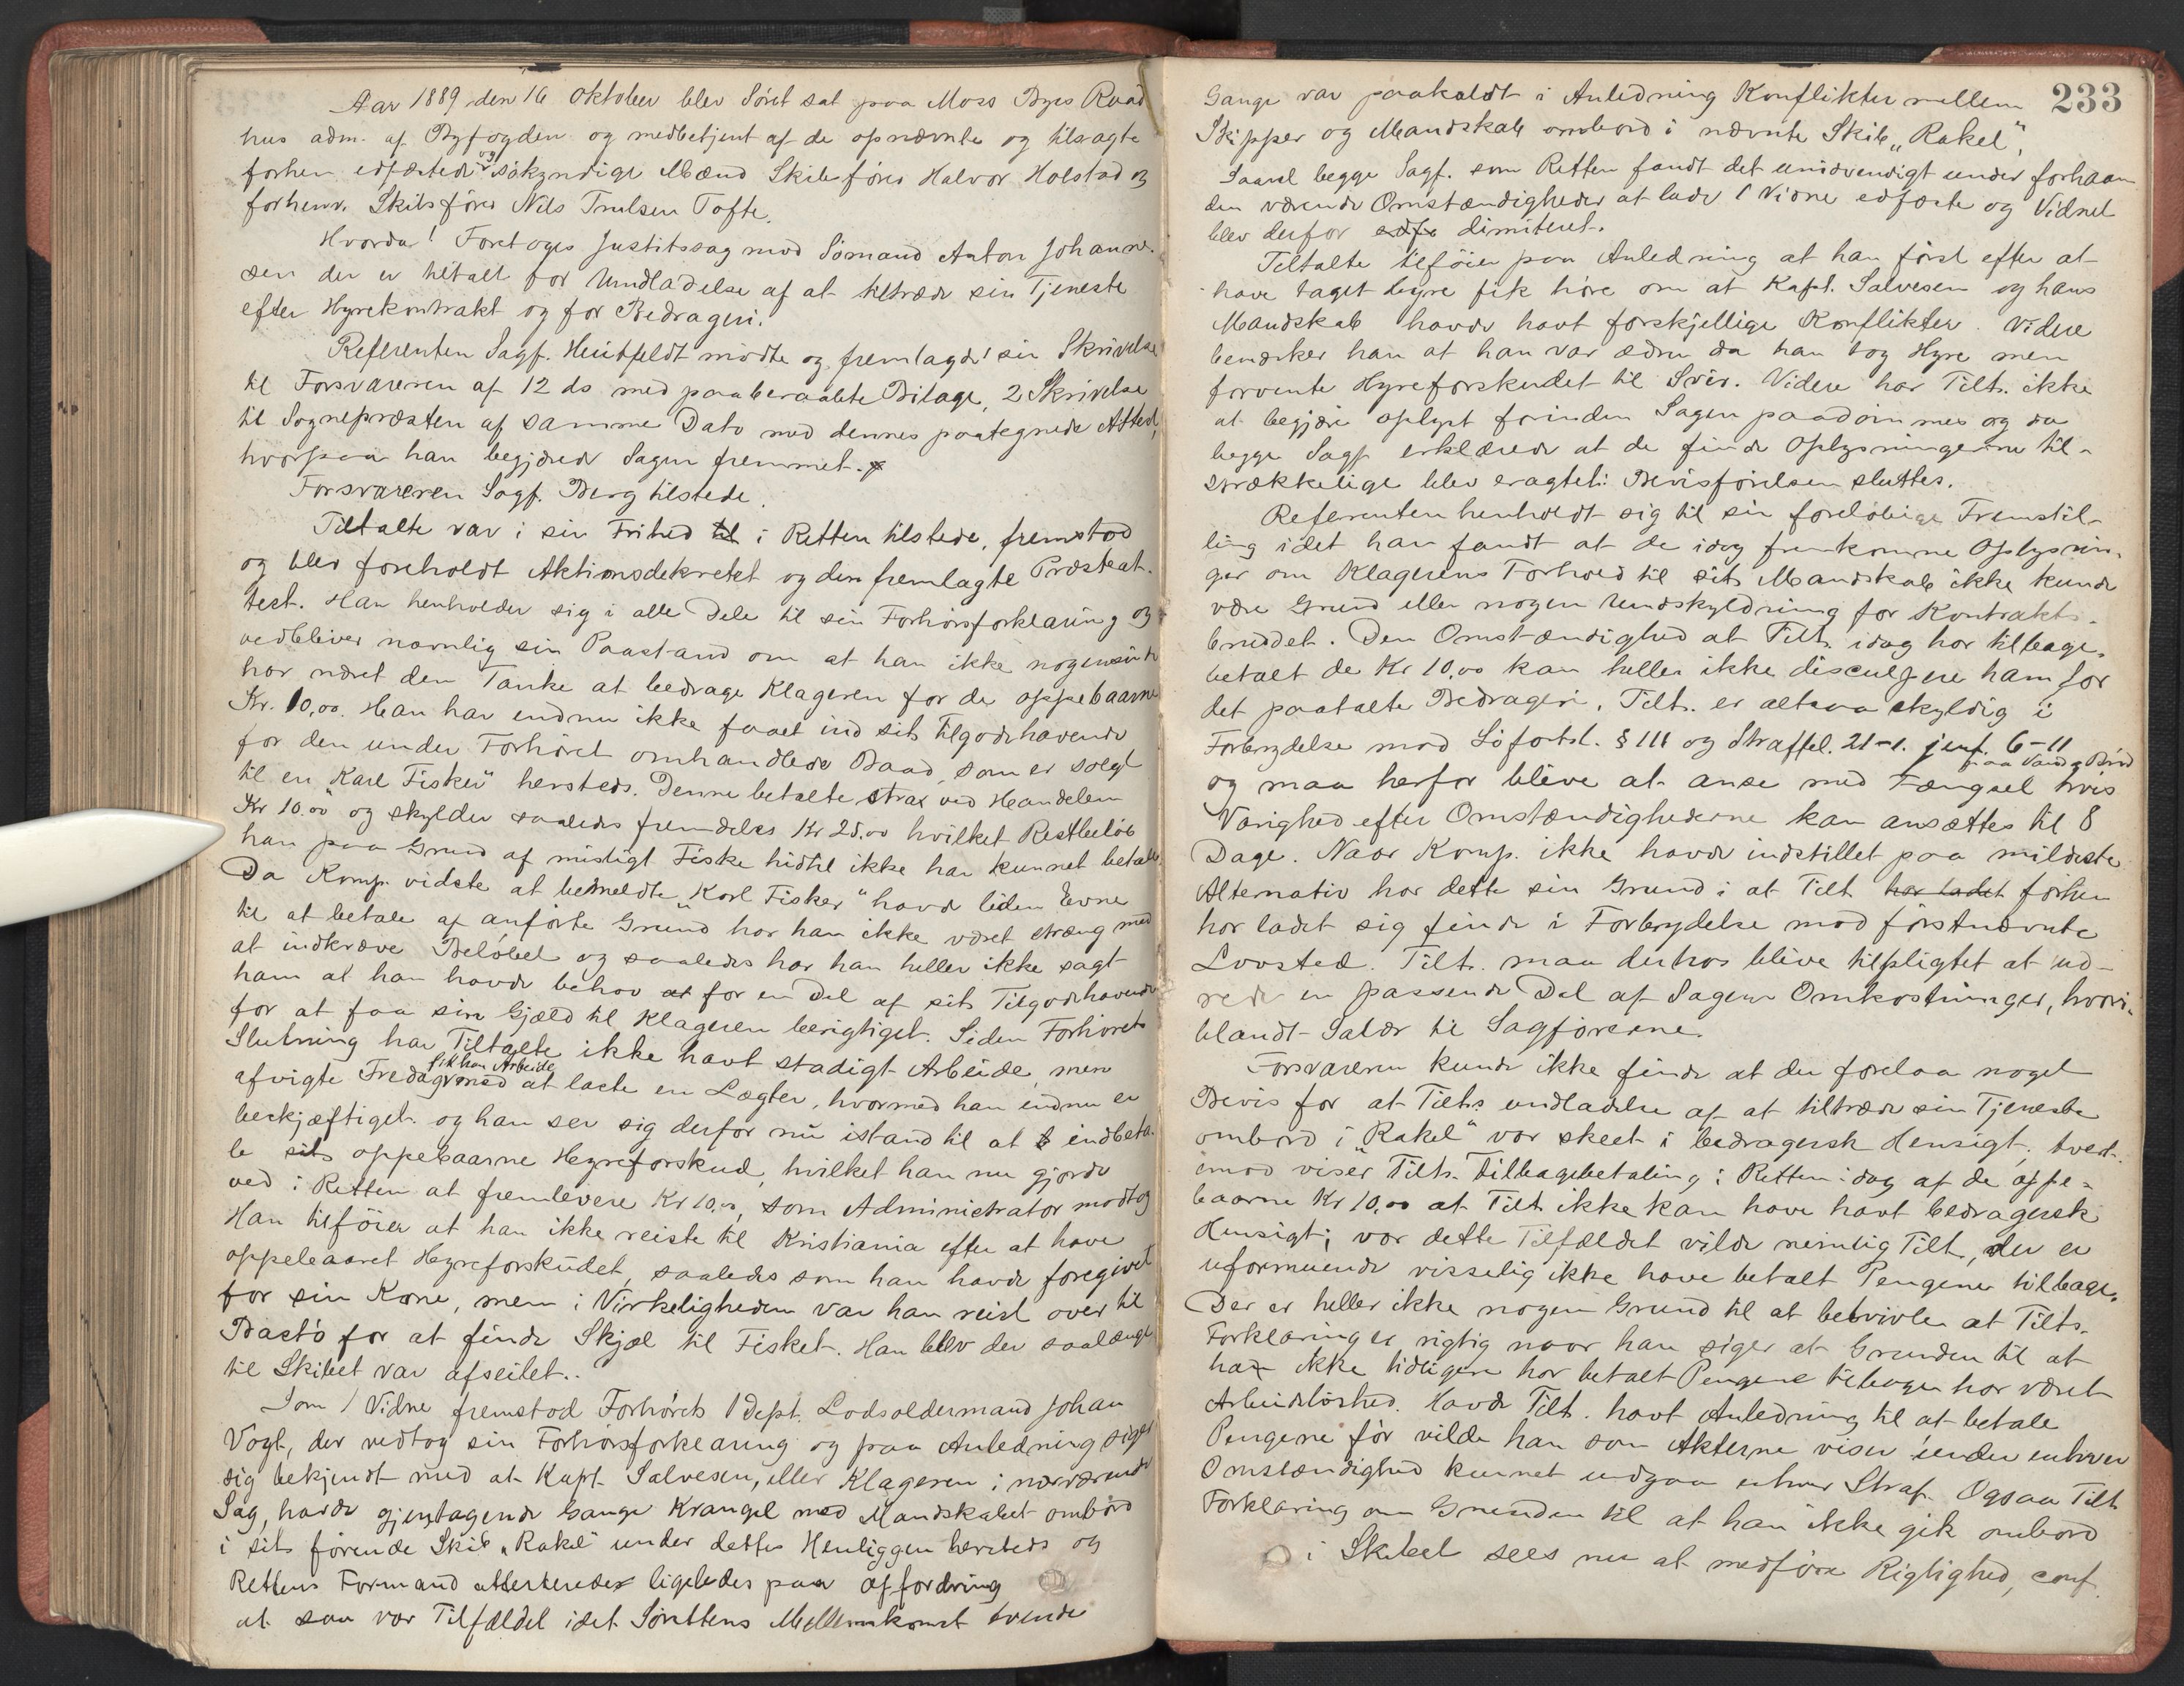 Aar 1889 den 16 Oktober blev Söret sat paa Moss Byes Raad
hus adm. af Byfogden og medbetjent af de opnævnte og tilsagte
forhen edfæstede og sökyndige Mænd Skibsförer Halvor Holstad og
forhenv. Skibsförer Nils Trulsen Tofte.
Hvorda! Foretoges Justitssag mod Sömand Anton Johanne-
sen der er tiltalt for Undladelse af at tiltræde sin Tjeneste
efter Hyrekontrakt og for Bedrageri.
Referenten Sagf. Heitfeldt mödte og fremlagde 1 sin Skrivelse
til Forsvareren af 12 ds med paaberaabte Bilage, 2 Skrivelse
til Sognepræsten af samme Dato med dennes paategnede Attest,
hvorpaa han begjærede Sagen fremmet.
Forsvareren Sagf. Berg tilstede.
Tiltalte var i sin Frihed til i Retten tilstede, fremstod
og blev foreholdt Aktionsdekretet og den fremlagte Præsteat-
test. Han henholder sig i alle Dele til sin Forhörsforklaring og
vedbliver navnlig sin Paastand om at han ikke nogensinde
har næret den Tanke at bedrage Klageren for de oppebaarne
Kr. 10,00. Han har endnu ikke faaet ind sit Tilgodehavende
for den under Forhöret omhandlede Baad, som er solgt
til en "Karl Fisker" hersteds. Denne betalte strax ved Handelen
Kr 10.00 og skylder saaledes fremdeles Kr 25.00 hvilket Restbelöb
han paa Grund af misligt Fiske hidtil ikke har kunnet betale.
Da Komp. vidste at bemeldte "Karl Fisker" havde liden Evne
til at betale af anförte Grund har han ikke været stræng med
at indkræve Belöbet og saaledes har han heller ikke sagt
ham at han havde behov at for en Del af sit Tilgodehavende
for at faa sin Gjæld til Klageren berigtiget. Siden Forhörets
Slutning har Tiltalte ikke havt stadigt Arbeide, men
afvigte Fredag fik han Arbeide med at laste en Lægter, hvormed han endnu er
beskjæftiget og han ser sig derfor nu istand til at indbeta-
le sit oppebaarne Hyreforskud, hvilket han nu gjorde
ved i Retten at fremlevere Kr 10,00, som Administrator modtog
Han tilföier at han ikke reiste til Kristiania efter at have
oppebaaret Hyreforskudet, saaledes som han havde foregivet
for sin Kone, men i Virkeligheden var han reist over til
Bastö for at finde Skjæl til Fisket. Han blev der saalænge
til Skibet var afseilet.
Som 1 Vidne fremstod Forhörets 1 Dept. Lodsoldermand Johan
Vogt, der vedtog sin Forhörsforklaring og paa Anledning siger
sig bekjendt med at Kapt. Salvesen, eller Klageren i nærværende
Sag, havde gjentagende Gange Krangel med Mandskabet ombord
i sit förende Skib "Rakel" under dettes Henliggen hersteds og
Rettens Formand attesterede ligeledes paa Opfordring
at saa var Tilfældet idet Sörettens Mellemkomst tvende
233
Gange var paakaldt i Anledning Konflikter mellem
Skipper og Mandskab ombord i nævnte Skib "Rakel".
Saavel begge Sagf. som Retten fandt det unödvendigt under forhaan
den værende Omstændigheder at lade 1 Vidne edfæste og Vidnet
blev derfor edfæ dimiteret.
Tiltalte tilföier paa Anledning at han först efter at
have taget Hyre fik höre om at Kapt. Salvesen og hans
Mandskab havde havt forskjellige Konflikter. Videre
bemærker han at han var ædru da han tog Hyre men
forvente Hyreforskudet til Svir. Videre har Tilt. ikke
at begjære oplyst forinden Sagen paadömmes og da
begge Sagf. erklærede at de finde Oplysningerne til-
strækkelige blev eragtet: Bevisförelsen sluttes.
Referenten henholdt sig til sin foreløbige Fremstil-
ling idet han fandt at de idag fremkomne Oplysnin-
ger om Klagerens Forhold til sit Mandskab ikke kunde
være Grund eller nogen Undskyldning for Kontrakts-
bruddet. Den Omstændighed at Tilt. idag har tilbage-
betalt de Kr 10,00 kan heller ikke disculpere ham for
det paatalte Bedrageri. Tilt. er altsaa skyldig i
Forbrydelse mod Söfartsl. § 111 og Straffel. 21-1. jevf. 6-11
og maa herfor blive at anse med Fængsel paa Vand & Bröd hvis
Varighed efter Omstændighederne kan ansættes til 8
Dage. Naar Komp. ikke havde indstillet paa mildeste
Alternativ har dette sin Grund i at Tilt har ladet forhen
har ladet sig finde i Forbrydelse mod förstnævnte
Lovsted. Tilt. maa derhos blive tilpligtet at ud-
rede en passende Del af Sagens Omkostninger, hvori-
blandt Salær til Sagförerne.
Forsvareren kunde ikke finde at der forelaa noget
Bevis for at Tilts. undladelse af at tiltræde sin Tjeneste
ombord i "Rakel" var skeet i bedragersk Hensigt; tvert-
imod viser Tilts. Tilbagebetaling i Retten idag af de oppe-
baarne Kr 10,00 at Tilt. ikke kan have havt bedragersk
Hensigt; var dette Tilfældet vilde nemlig Tilt, der er
uformuende visselig ikke have betalt Pengene tilbage.
Der er heller ikke nogen Grund til at betvivle at Tilts.
Forklaring er rigtig naar han siger at Grunden til at
han ikke tidligere har betalt Pengene tilbage har været
Arbeidslöshed. Havde Tilt. havt Anledning til at betale
Pengene för vilde han som Akterne viser under enhver
Omstændighed kunnet undgaa enhver Straf. Ogsaa Tilt.
Forklaring om Grunden til at han ikke gik ombord
i Skibet sees nu at medföre Rigtighed, conf.